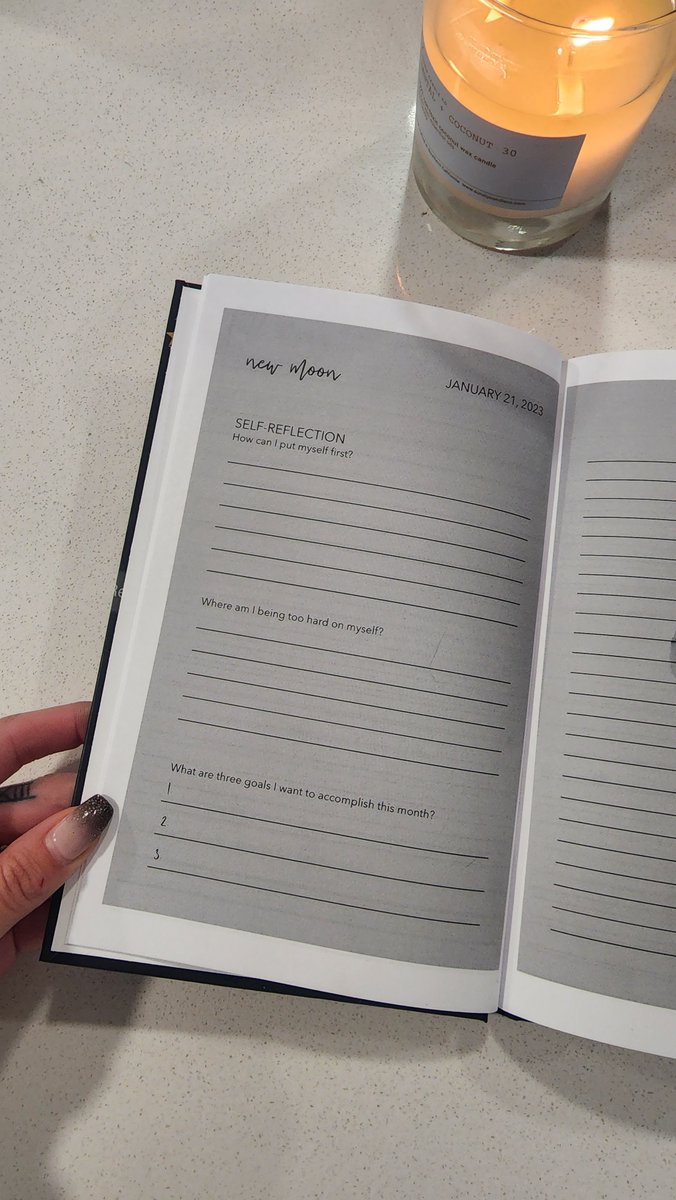 COCONUT 30
coconut wax candle
new moon
JANUARY 21, 2023
SELF-REFLECTION
How can I put myself first?
Where am I being too hard on myself?
What are three goals I want to accomplish this month?
1
2
3